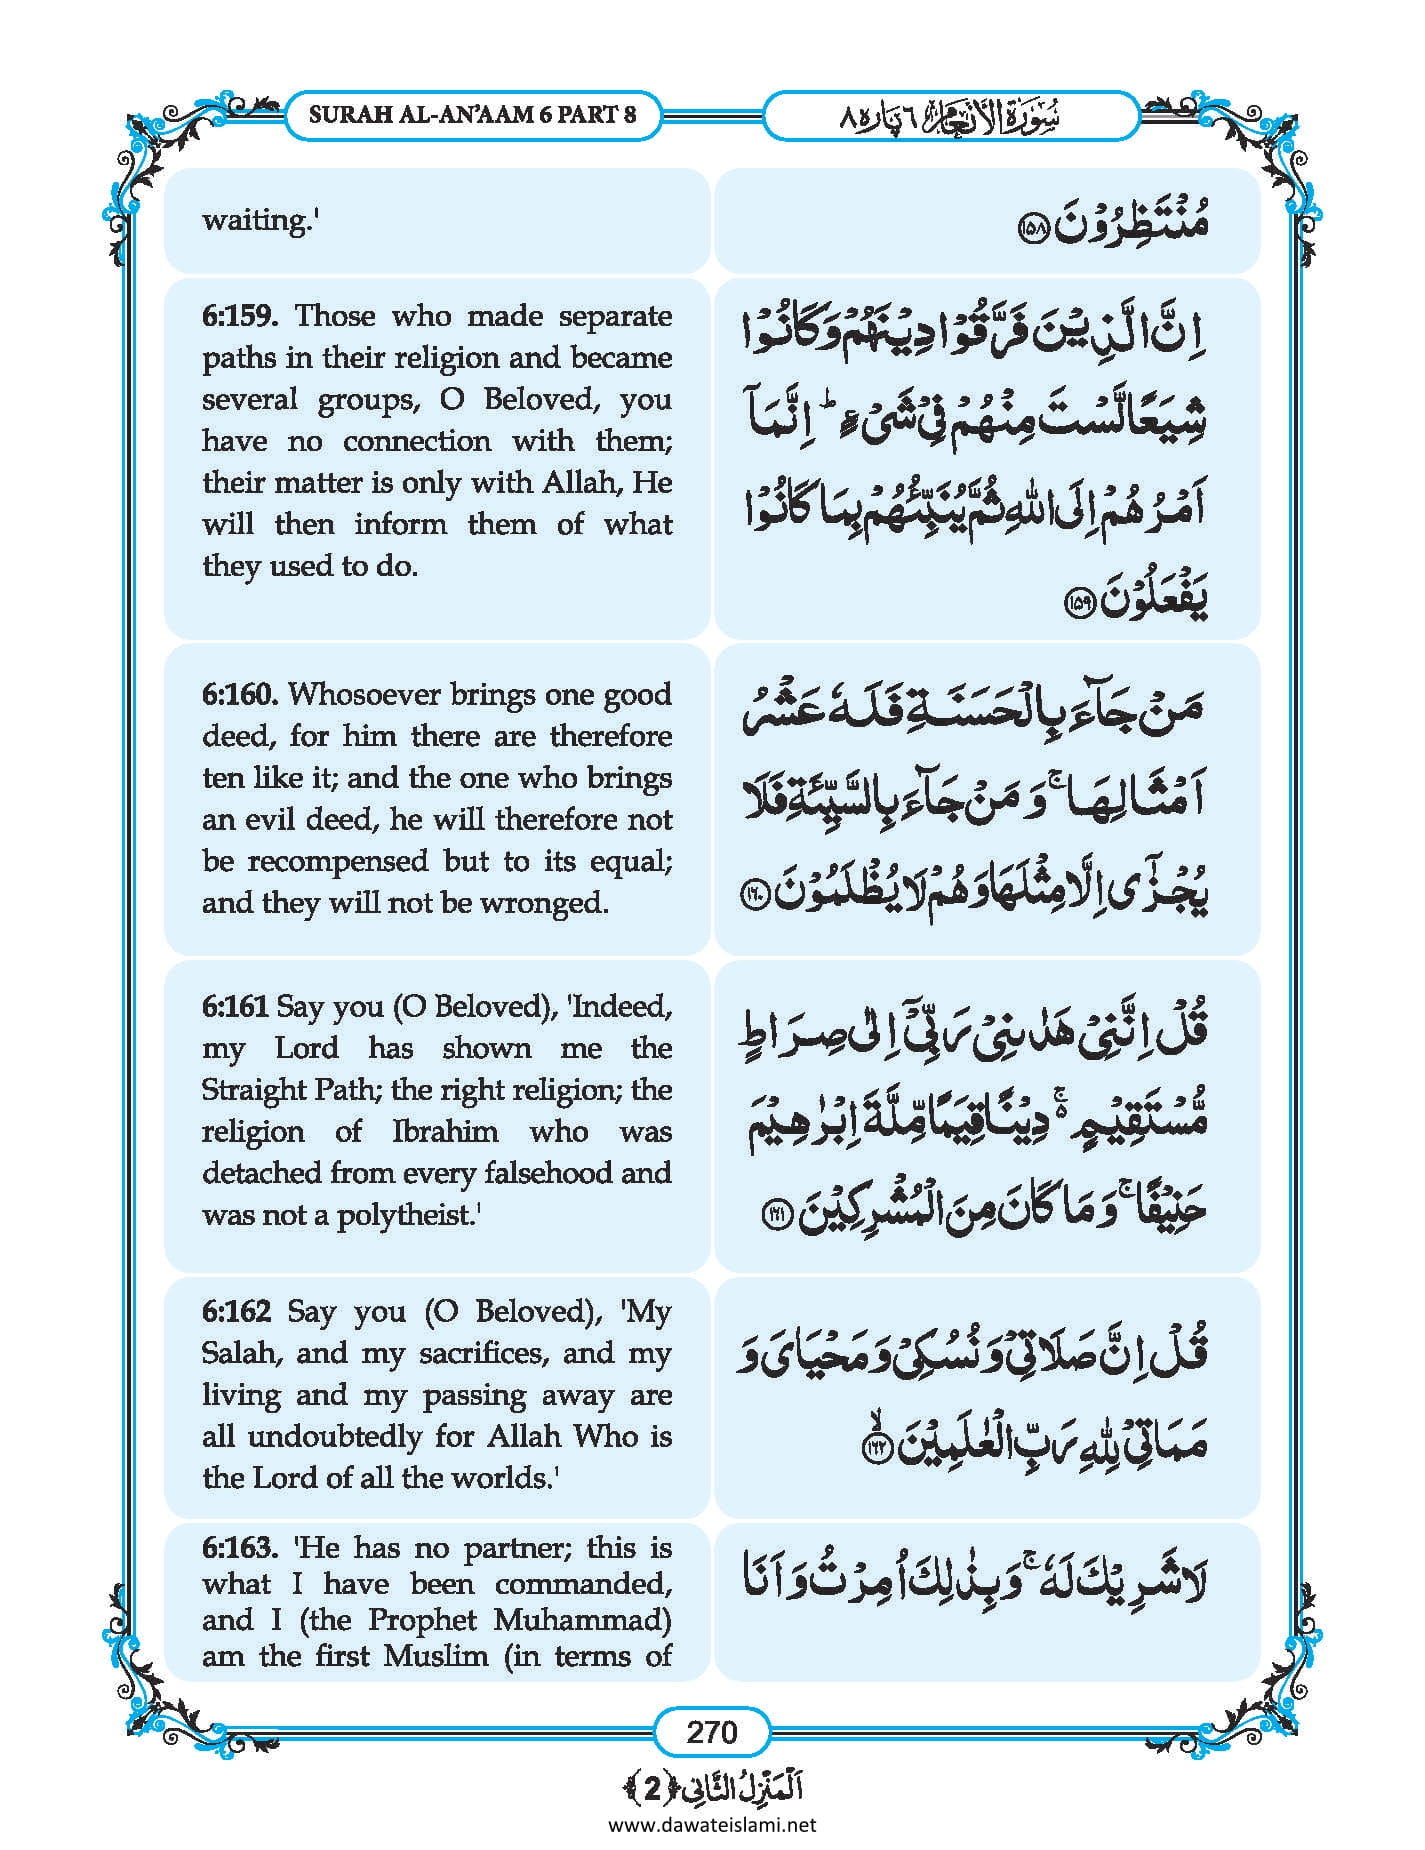 SURAH AL-AN’AAM 6 PART 8
سُوْرَةُ الْاَنْعَام ٦ پارہ ٨
waiting.'
مُنْتَظِرُوْنَ ﴿۱۵۸﴾
6:159. Those who made separate
paths in their religion and became
several groups, O Beloved, you
have no connection with them;
their matter is only with Allah, He
will then inform them of what
they used to do.
اِنَّ الَّذِیْنَ فَرَّقُوْا دِیْنَهُمْ وَ كَانُوْا
شِیَعًا لَّسْتَ مِنْهُمْ فِیْ شَیْءٍ ؕ اِنَّمَاۤ
اَمْرُهُمْ اِلَی اللّٰهِ ثُمَّ یُنَبِّئُهُمْ بِمَا كَانُوْا
یَفْعَلُوْنَ ﴿۱۵۹﴾
6:160. Whosoever brings one good
deed, for him there are therefore
ten like it; and the one who brings
an evil deed, he will therefore not
be recompensed but to its equal;
and they will not be wronged.
مَنْ جَآءَ بِالْحَسَنَةِ فَلَهٗ عَشْرُ
اَمْثَالِهَا ۚ وَ مَنْ جَآءَ بِالسَّیِّئَةِ فَلَا
یُجْزٰۤی اِلَّا مِثْلَهَا وَ هُمْ لَا یُظْلَمُوْنَ ﴿۱۶۰﴾
6:161 Say you (O Beloved), 'Indeed,
my Lord has shown me the
Straight Path; the right religion; the
religion of Ibrahim who was
detached from every falsehood and
was not a polytheist.'
قُلْ اِنَّنِیْ هَدٰىنِیْ رَبِّیْۤ اِلٰی صِرَاطٍ
مُّسْتَقِیْمٍ ۬ۚ دِیْنًا قِیَمًا مِّلَّةَ اِبْرٰهِیْمَ
حَنِیْفًا ۚ وَ مَا كَانَ مِنَ الْمُشْرِكِیْنَ ﴿۱۶۱﴾
6:162 Say you (O Beloved), 'My
Salah, and my sacrifices, and my
living and my passing away are
all undoubtedly for Allah Who is
the Lord of all the worlds.'
قُلْ اِنَّ صَلَاتِیْ وَ نُسُكِیْ وَ مَحْیَایَ وَ
مَمَاتِیْ لِلّٰهِ رَبِّ الْعٰلَمِیْنَ ﴿۱۶۲﴾ۙ
6:163. 'He has no partner; this is
what I have been commanded,
and I (the Prophet Muhammad)
am the first Muslim (in terms of
لَا شَرِیْكَ لَهٗ ۚ وَ بِذٰلِكَ اُمِرْتُ وَ اَنَا
270
اَلْمَنْزِلُ الثَّانِی ﴿2﴾
www.dawateislami.net